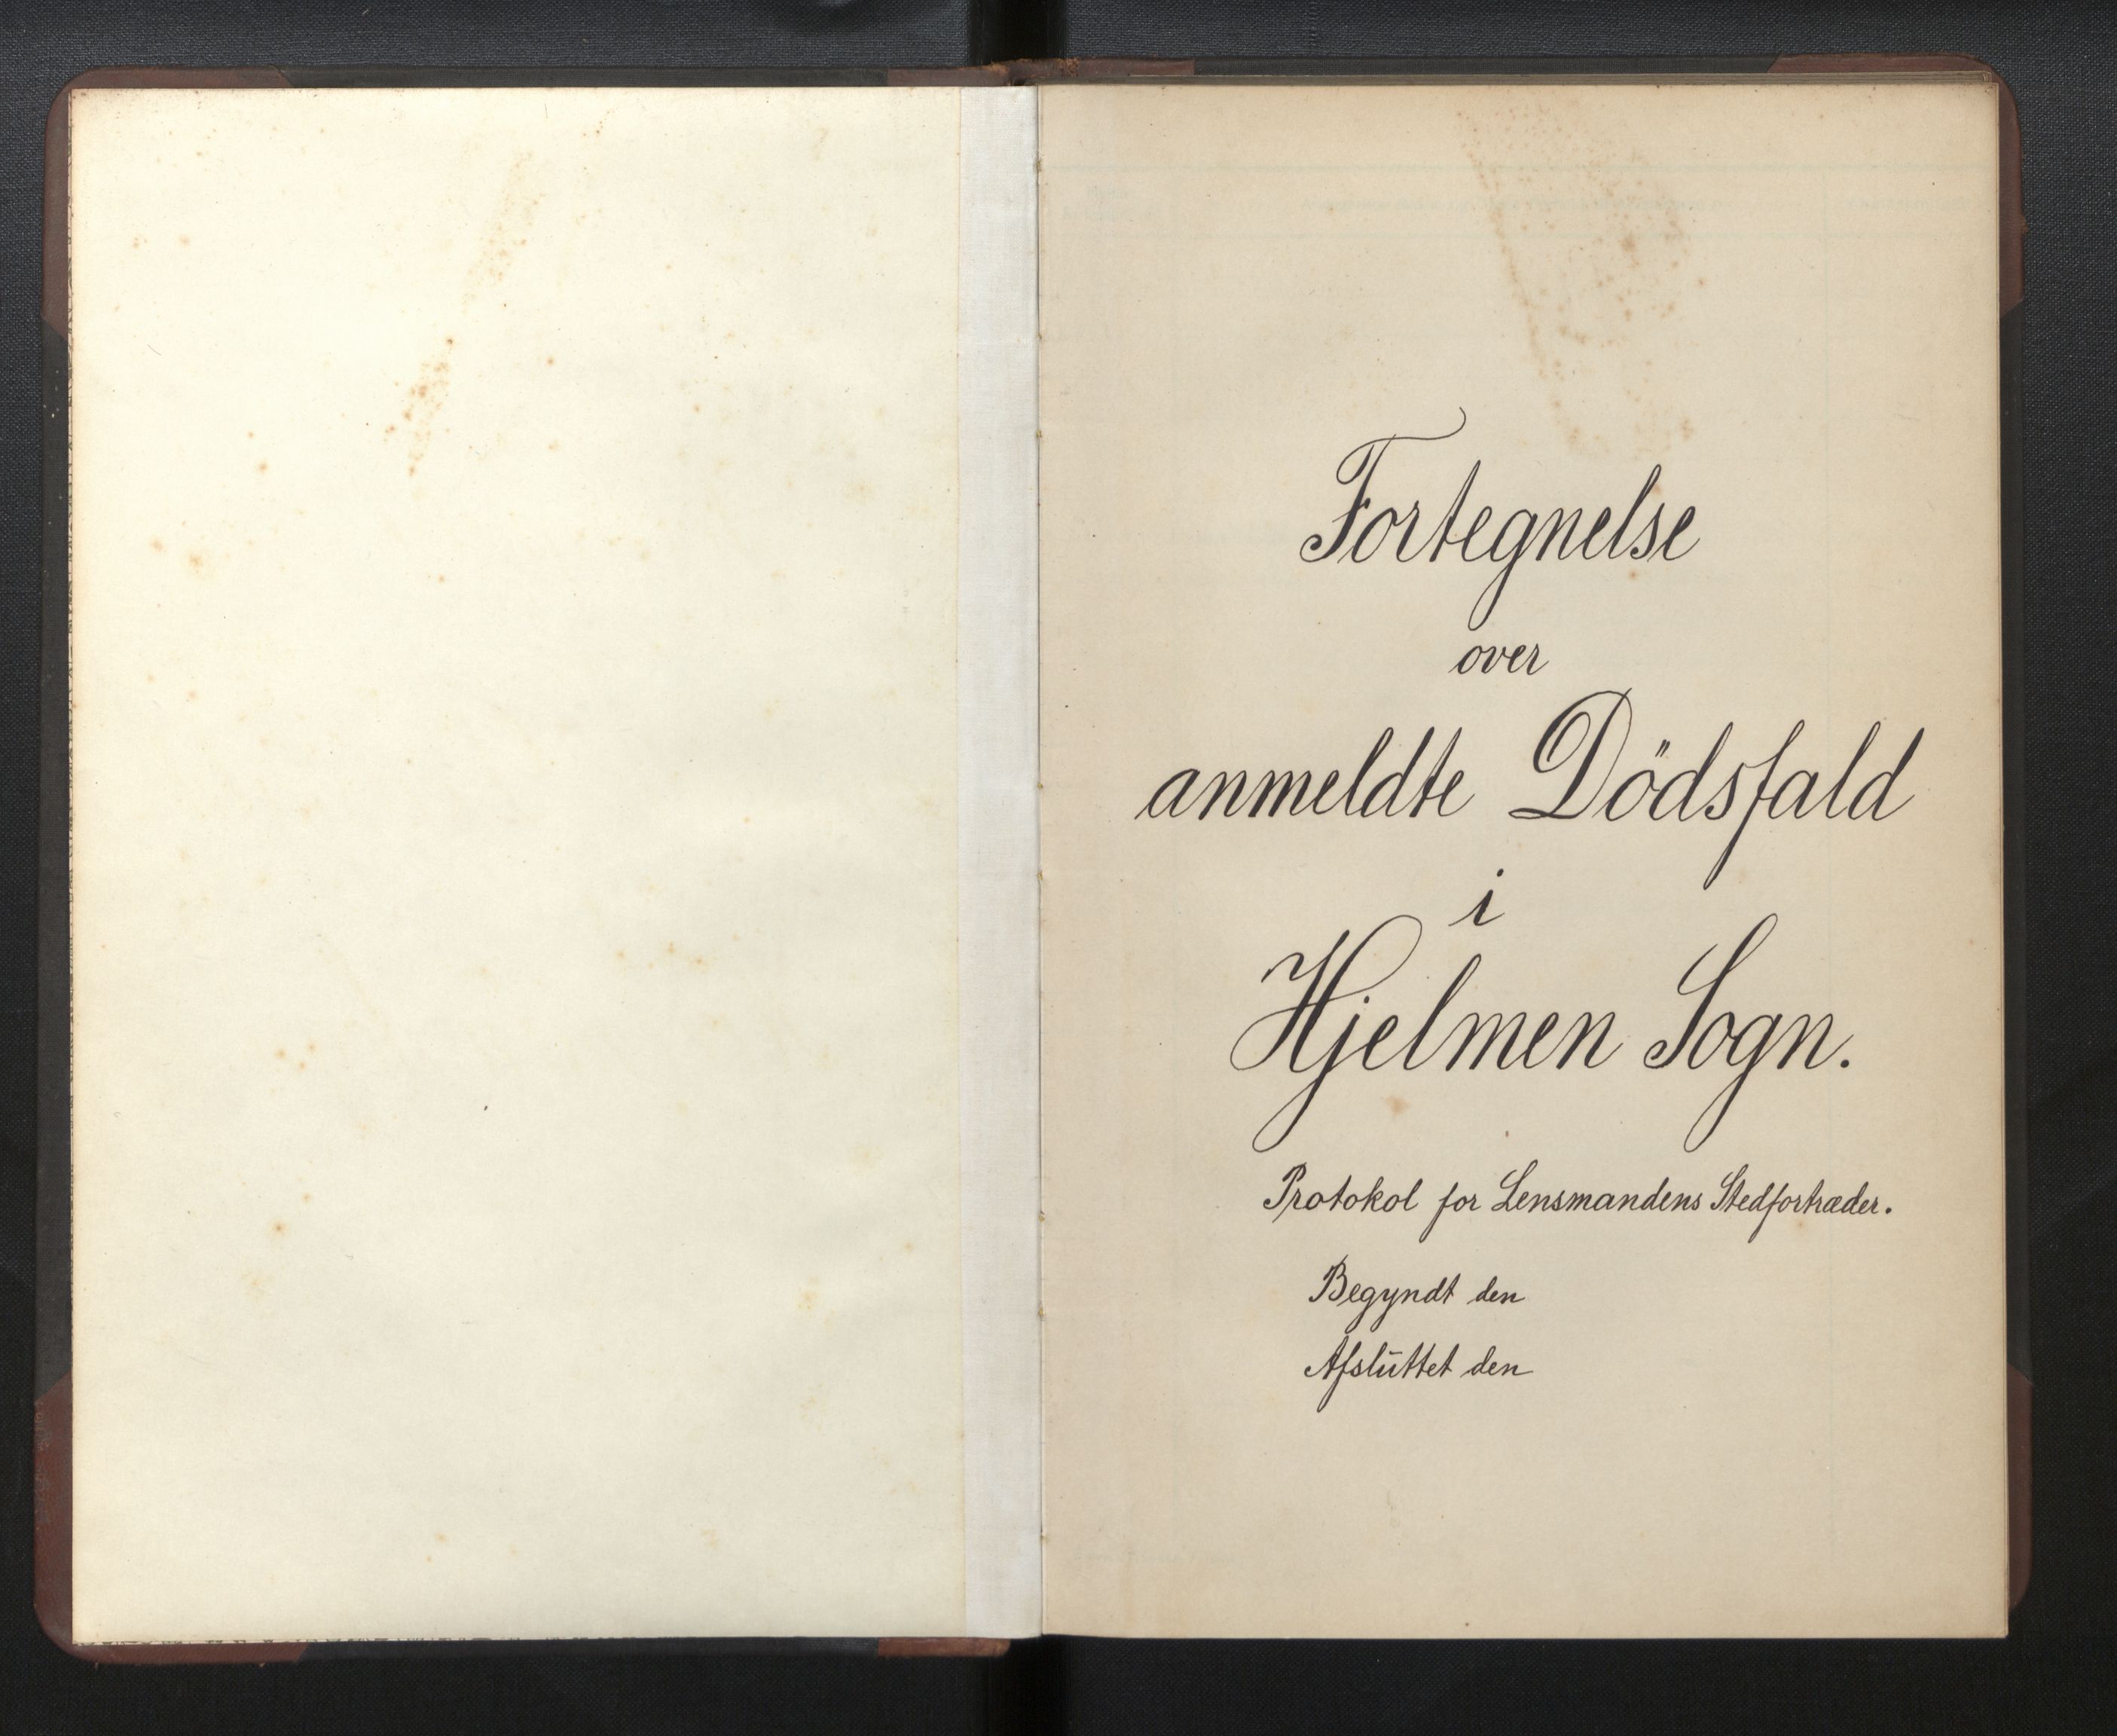 Fortegnelse
over
anmeldte Dödsfald
i
Hjelmen Sogn.
Protokol for Lensmandens Stedfortræder.
Begyndt den
Afslūttet den